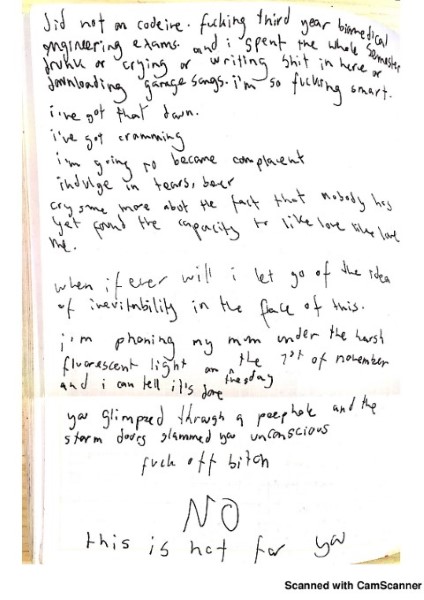 did not on codeine. fucking third year biomedical
engineering exams. and i spent the whole semester
drunk or crying or writing shit in here or
downloading garage songs. i'm so fucking smart.
i've got that down.
i've got cramming
i'm going to become complacent
indulge in tears, beer
cry some more about the fact that nobody has
yet found the capacity to like love like love
me.
when if ever will i let go of the idea
of inevitability in the face of this.
i'm phoning my mum under the harsh
fluorescent light on the 7st of november
and i can tell it's done
tuesday
you glimpzed through a peephole and the
storm doors slammed you unconscious
fuck off bitch
NO
this is not for you
Scanned with CamScanner